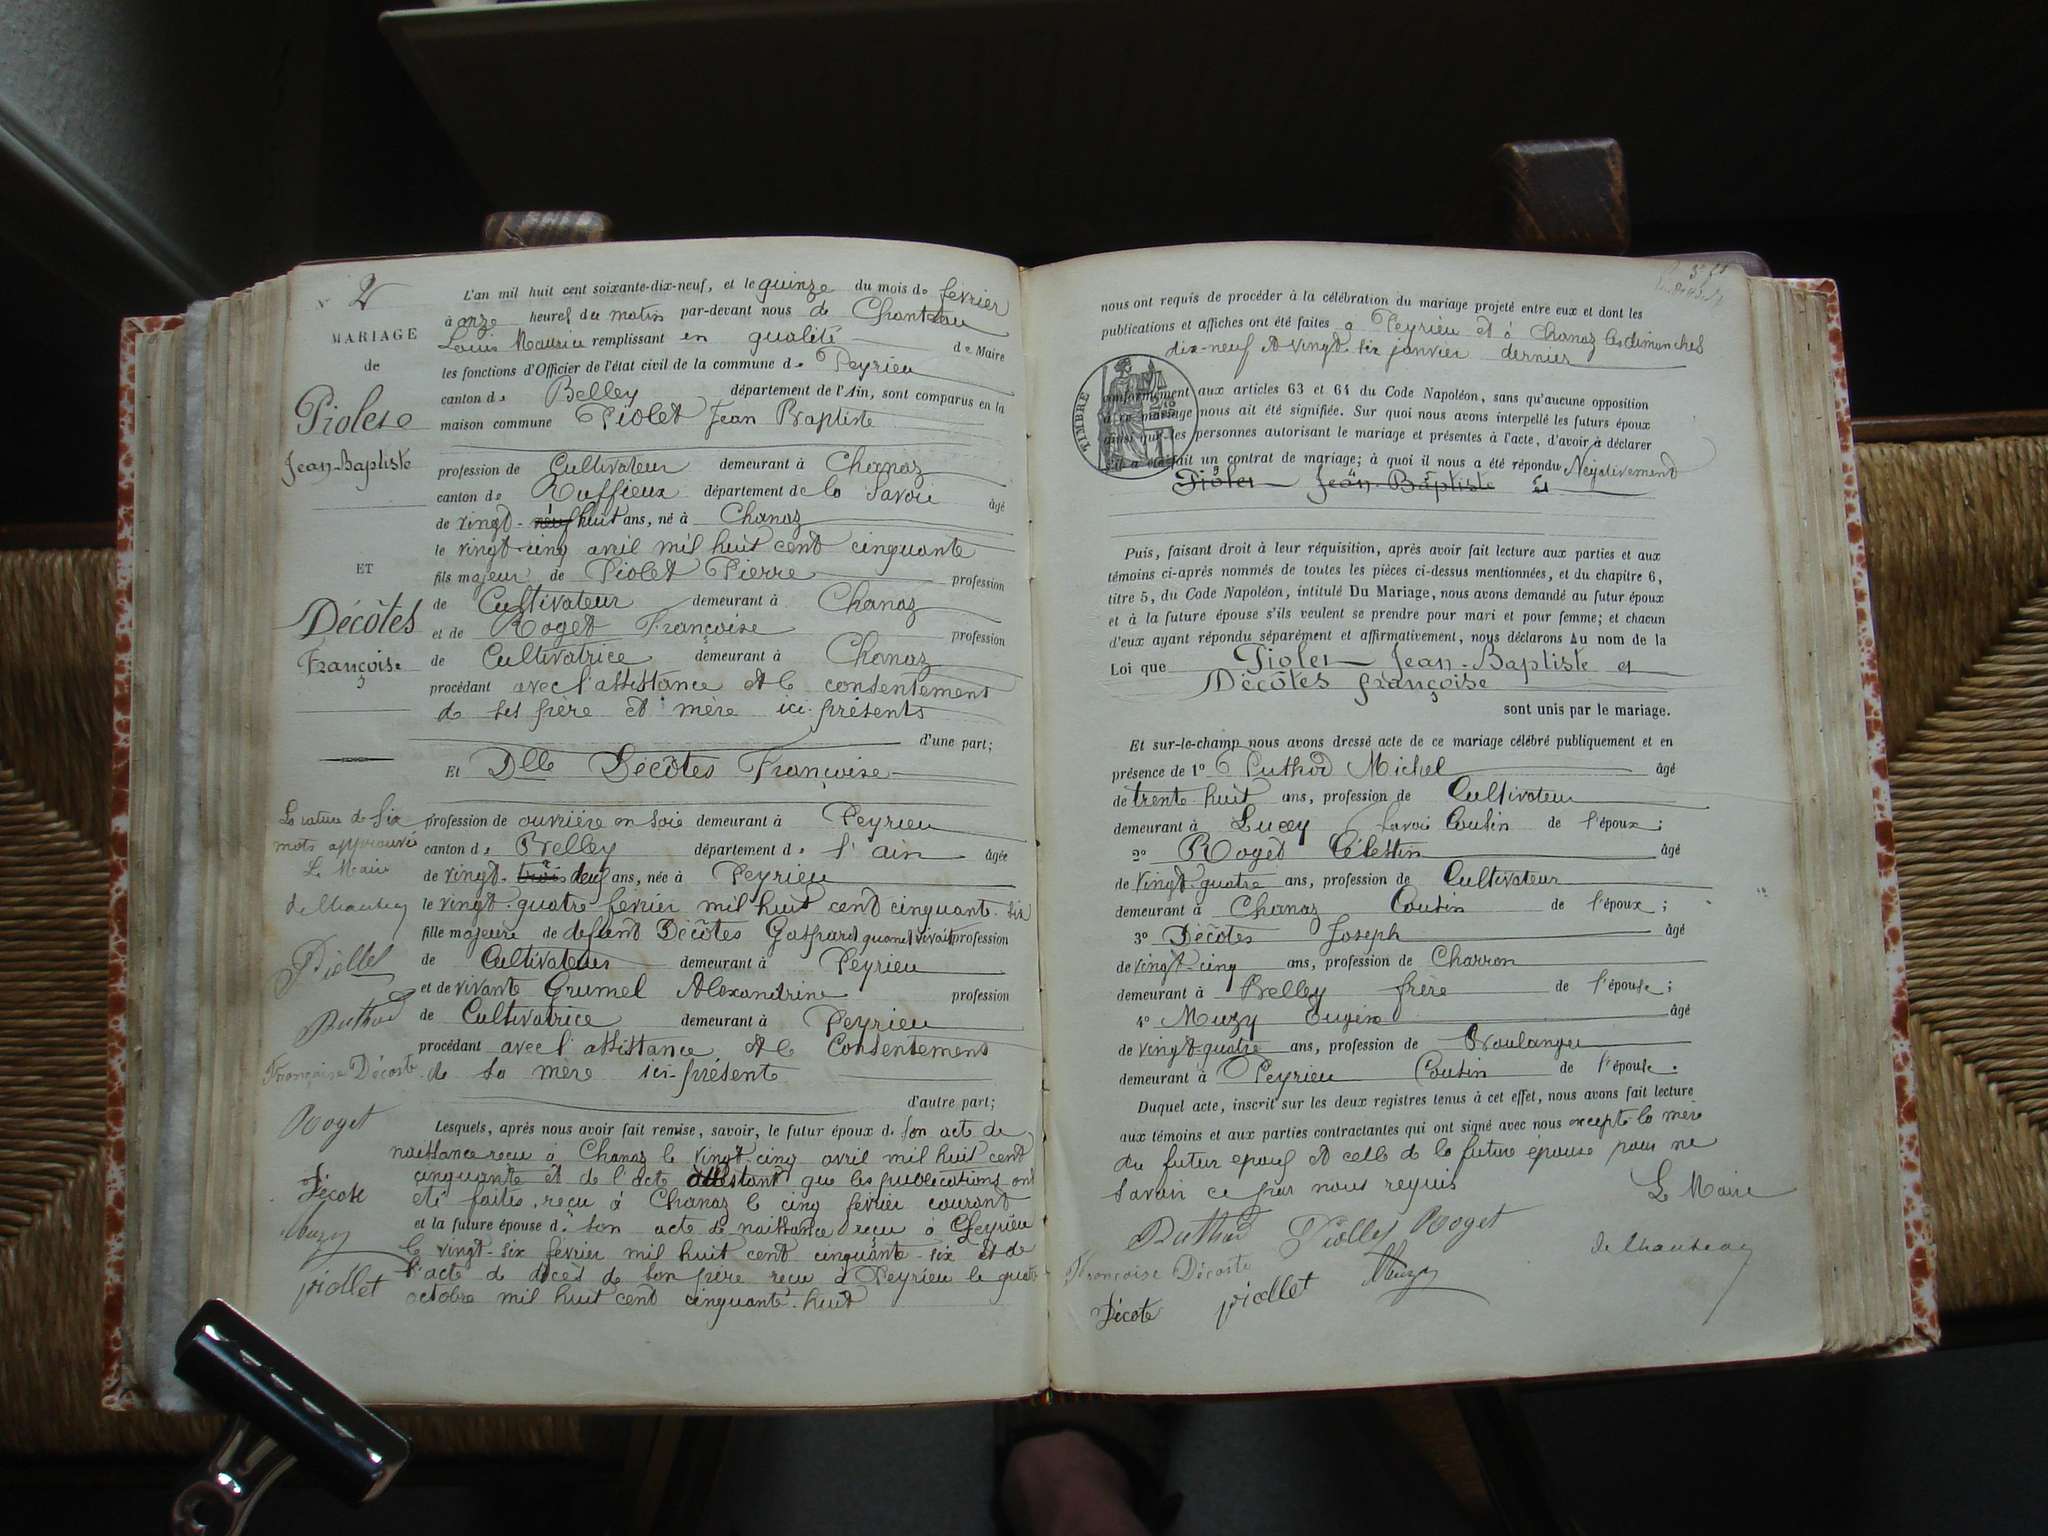 N° 2
MARIAGE
de
Piolet
Jean-Baptiste
ET
Décôtes
Françoise
La rature de six
mots approuvé
Le Maire
de Chanteau
Piollet
Puthod
Françoise Décoste
Roget
Décote
Muzy
piollet
L'an mil huit cent soixante-dix-neuf, et le quinze du mois de février
à onze heures du matin par-devant nous de Chanteau
Louis Maurice remplissant en qualité de Maire
les fonctions d'Officier de l'état civil de la commune de Peyrieu
canton de Belley département de l'Ain, sont comparus en la
maison commune Piolet Jean Baptiste
profession de Cultivateur demeurant à Chanaz
canton de Ruffieux département de la Savoie âgé
de vingt-neuf huit ans, né à Chanaz
le vingt-cinq avril mil huit cent cinquante
fils majeur de Piolet Pierre profession
de Cultivateur demeurant à Chanaz
et de Roget Françoise profession
de Cultivatrice demeurant à Chanaz
procédant avec l'assistance et le consentement
de ses père et mère ici présents
d'une part;
Et Dlle Décôtes Françoise
profession de ouvrière en soie demeurant à Peyrieu
canton de Belley département de l'ain âgée
de vingt-trois deux ans, née à Peyrieu
le vingt-quatre février mil huit cent cinquante-six
fille majeure de défunt Décôtes Gaspard quand vivait profession
de Cultivateur demeurant à Peyrieu
et de vivante Grumel Alexandrine profession
de Cultivatrice demeurant à Peyrieu
procédant avec l'assistance et le Consentement
de sa mère ici-présente
d'autre part;
Lesquels, après nous avoir fait remise, savoir, le futur époux de son acte de
naissance reçu à Chanaz le vingt-cinq avril mil huit cent
cinquante et de l'acte attestant que les publications ont
été faites, reçu à Chanaz le cinq février courant
et la future épouse de son acte de naissance reçu à Peyrieu
le vingt-six février mil huit cent cinquante-six et de
l'acte de décès de son père reçu à Peyrieu le quatre
octobre mil huit cent cinquante-huit
nous ont requis de procéder à la célébration du mariage projeté entre eux et dont les
publications et affiches ont été faites à Peyrieu et à Chanaz les dimanches
dix-neuf et vingt six janvier dernier
TIMBRE
conformément aux articles 63 et 64 du Code Napoléon, sans qu'aucune opposition
à ce mariage nous ait été signifiée. Sur quoi nous avons interpellé les futurs époux
ainsi que les personnes autorisant le mariage et présentes à l'acte, d'avoir à déclarer
s'il a été fait un contrat de mariage; à quoi il nous a été répondu Négativement
Piolet Jean-Baptiste et
Puis, faisant droit à leur réquisition, après avoir fait lecture aux parties et aux
témoins ci-après nommés de toutes les pièces ci-dessus mentionnées, et du chapitre 6,
titre 5, du Code Napoléon, intitulé Du Mariage, nous avons demandé au futur époux
et à la future épouse s'ils veulent se prendre pour mari et pour femme; et chacun
d'eux ayant répondu séparément et affirmativement, nous déclarons Au nom de la
Loi que Piolet Jean-Baptiste et
Décôtes françoise
sont unis par le mariage.
Et sur-le-champ nous avons dressé acte de ce mariage célébré publiquement et en
présence de 1° Puthod Michel âgé
de trente huit ans, profession de Cultivateur
demeurant à Lucey Savoie Cousin de l'époux;
2° Roget Célestin âgé
de vingt-quatre ans, profession de Cultivateur
demeurant à Chanaz Cousin de l'époux;
3° Décôtes Joseph âgé
de vingt-cinq ans, profession de Charron
demeurant à Belley frère de l'épouse;
4° Muzy Eugène âgé
de vingt-quatre ans, profession de Boulanger
demeurant à Peyrieu Cousin de l'épouse.
Duquel acte, inscrit sur les deux registres tenus à cet effet, nous avons fait lecture
aux témoins et aux parties contractantes qui ont signé avec nous excepté la mère
du futur époux et celle de la future épouse pour ne
savoir ce par nous requis
Le Maire
Puthod Piollet Roget
de Chanteau
Françoise Décoste Muzy
Décote piollet